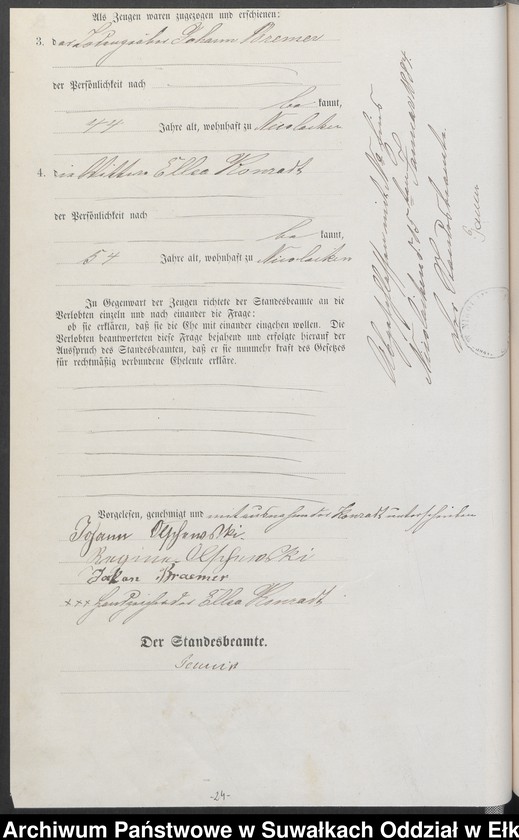 Als Zeugen waren zugezogen und erschienen:
3. der Johann Bremer
der Persönlichkeit nach
be kannt,
44 Jahre alt, wohnhaft zu Nicolaiken
4. die Ellsa Konradt
der Persönlichkeit nach
be kannt,
54 Jahre alt, wohnhaft zu Nicolaiken
In Gegenwart der Zeugen richtete der Standesbeamte an die
Verlobten einzeln und nach einander die Frage:
ob sie erklären, daß sie die Ehe mit einander eingehen wollen. Die
Verlobten beantworteten diese Frage bejahend und erfolgte hierauf der
Ausspruch des Standesbeamten, daß er sie nunmehr kraft des Gesetzes
für rechtmäßig verbundene Eheleute erkläre.
Vorgelesen, genehmigt und mit der Konradt unterschrieben
Johann Olschewski.
Regine Olschewski
Braemer
+++ Handzeichen der Ellsa Konradt
Der Standesbeamte.
Abgeschlossen mit
Nicolaiken den Januar 1884
Der Standesbeamte
-24-
Archiwum Państwowe w Suwałkach Oddział w Ełk